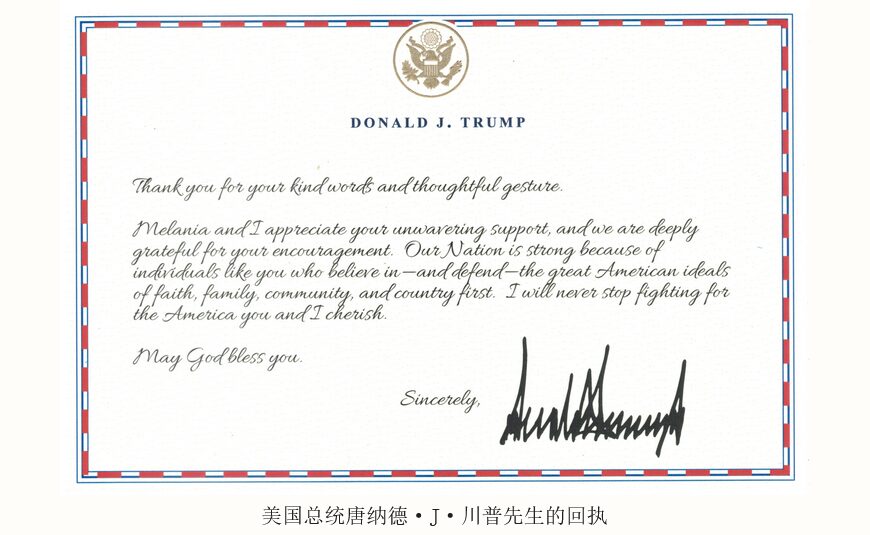 DONALD J. TRUMP
Thank you for your kind words and thoughtful gesture.
Melania and I appreciate your unwavering support, and we are deeply
grateful for your encouragement. Our Nation is strong because of
individuals like you who believe in—and defend—the great American ideals
of faith, family, community, and country first. I will never stop fighting for
the America you and I cherish.
May God bless you.
Sincerely,
美国总统唐纳德·J·川普先生的回执